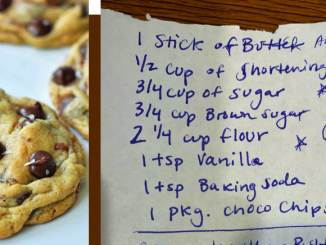 1 stick of Butter
1/2 cup of shortening
3/4 cup of sugar *
3/4 cup Brown sugar
2 1/4 cup flour * (
1 tsp Vanilla
1 tsp Baking soda
1 pkg. choco chips